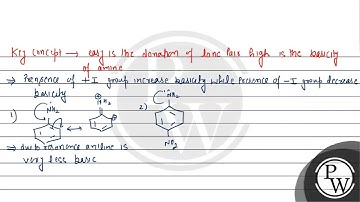 Key concept → easy is the donation of lone pair high is the basicity
of amine
⇒ Presence of +I group increase basicity while presence of -I group decrease
basicity
1) NH₂ ↔ NH₂ 2) NH₂
NO₂
⇒ due to resonance aniline is
very less basic
PW